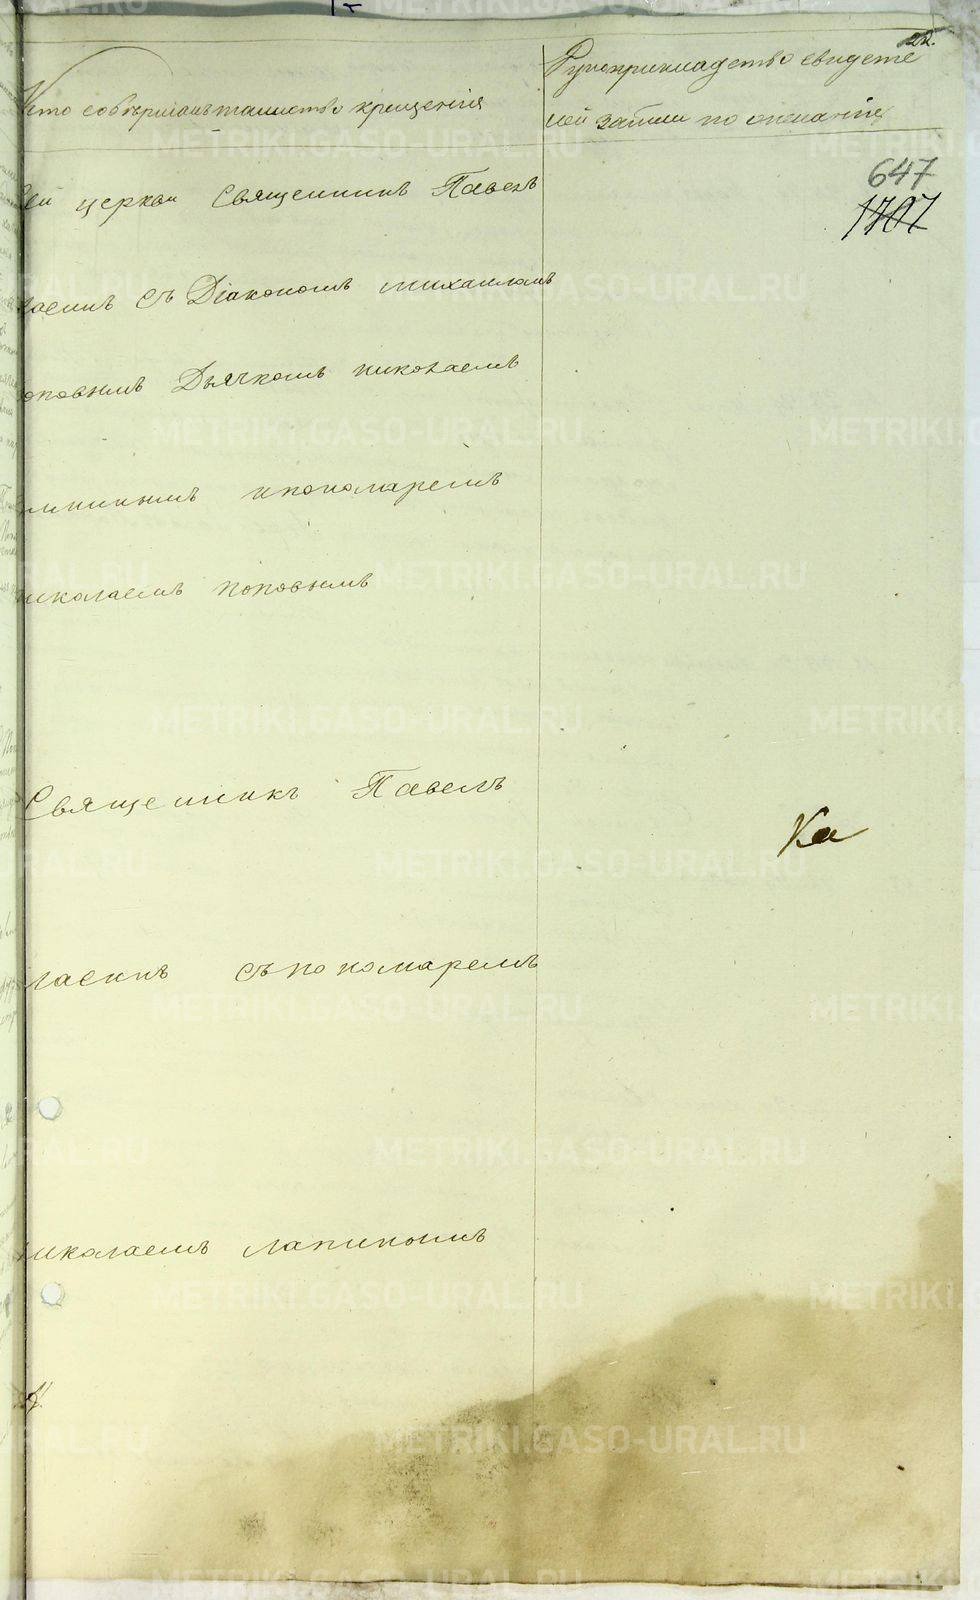 22.
Кто совершалъ таинство крещенія
Рукоприкладство свидете
лей записи по желанію
647
1707
сей церкви Священникъ Павелъ
съ Діакономъ михаиломъ
Дьячкомъ николаемъ
ипономаремъ
николаемъ поповымъ
Священникъ Павелъ
Ка
съ пономаремъ
николаемъ лапинымъ